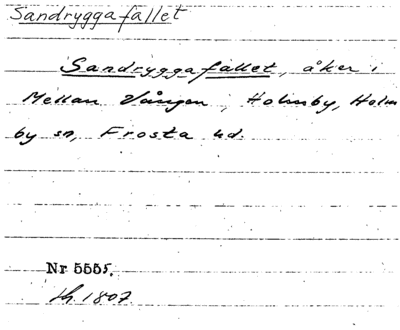 Sandryggafallet
Sandryggafallet, åker i
Mellan Vången, Holmby, Holm
by sn, Frosta hd.
Nr 5555.
th. 1807.